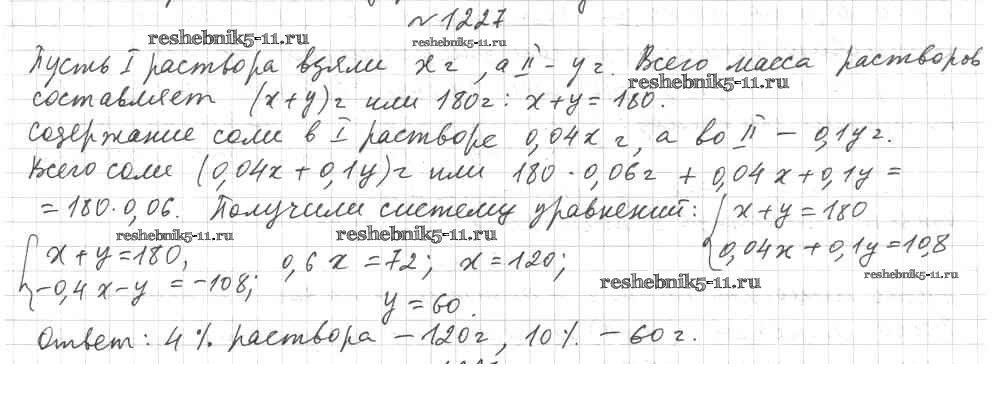 №1227
reshebnik5-11.ru
reshebnik5-11.ru
Пусть I раствора взяли x г, а II – y г. Всего масса растворов
reshebnik5-11.ru
составляет (x+y) г или 180 г: x+y=180.
Содержание соли в I растворе 0,04x г, а во II – 0,1y г.
Всего соли (0,04x + 0,1y) г или 180 · 0,06 г + 0,04x + 0,1y =
= 180 · 0,06. Получили систему уравнений: { x + y = 180
reshebnik5-11.ru
reshebnik5-11.ru
0,04x + 0,1y = 10,8
reshebnik5-11.ru
{ x + y = 180, 0,6x = 72; x = 120;
-0,4x - y = -108;
reshebnik5-11.ru
y = 60.
Ответ: 4% раствора – 120 г, 10% – 60 г.